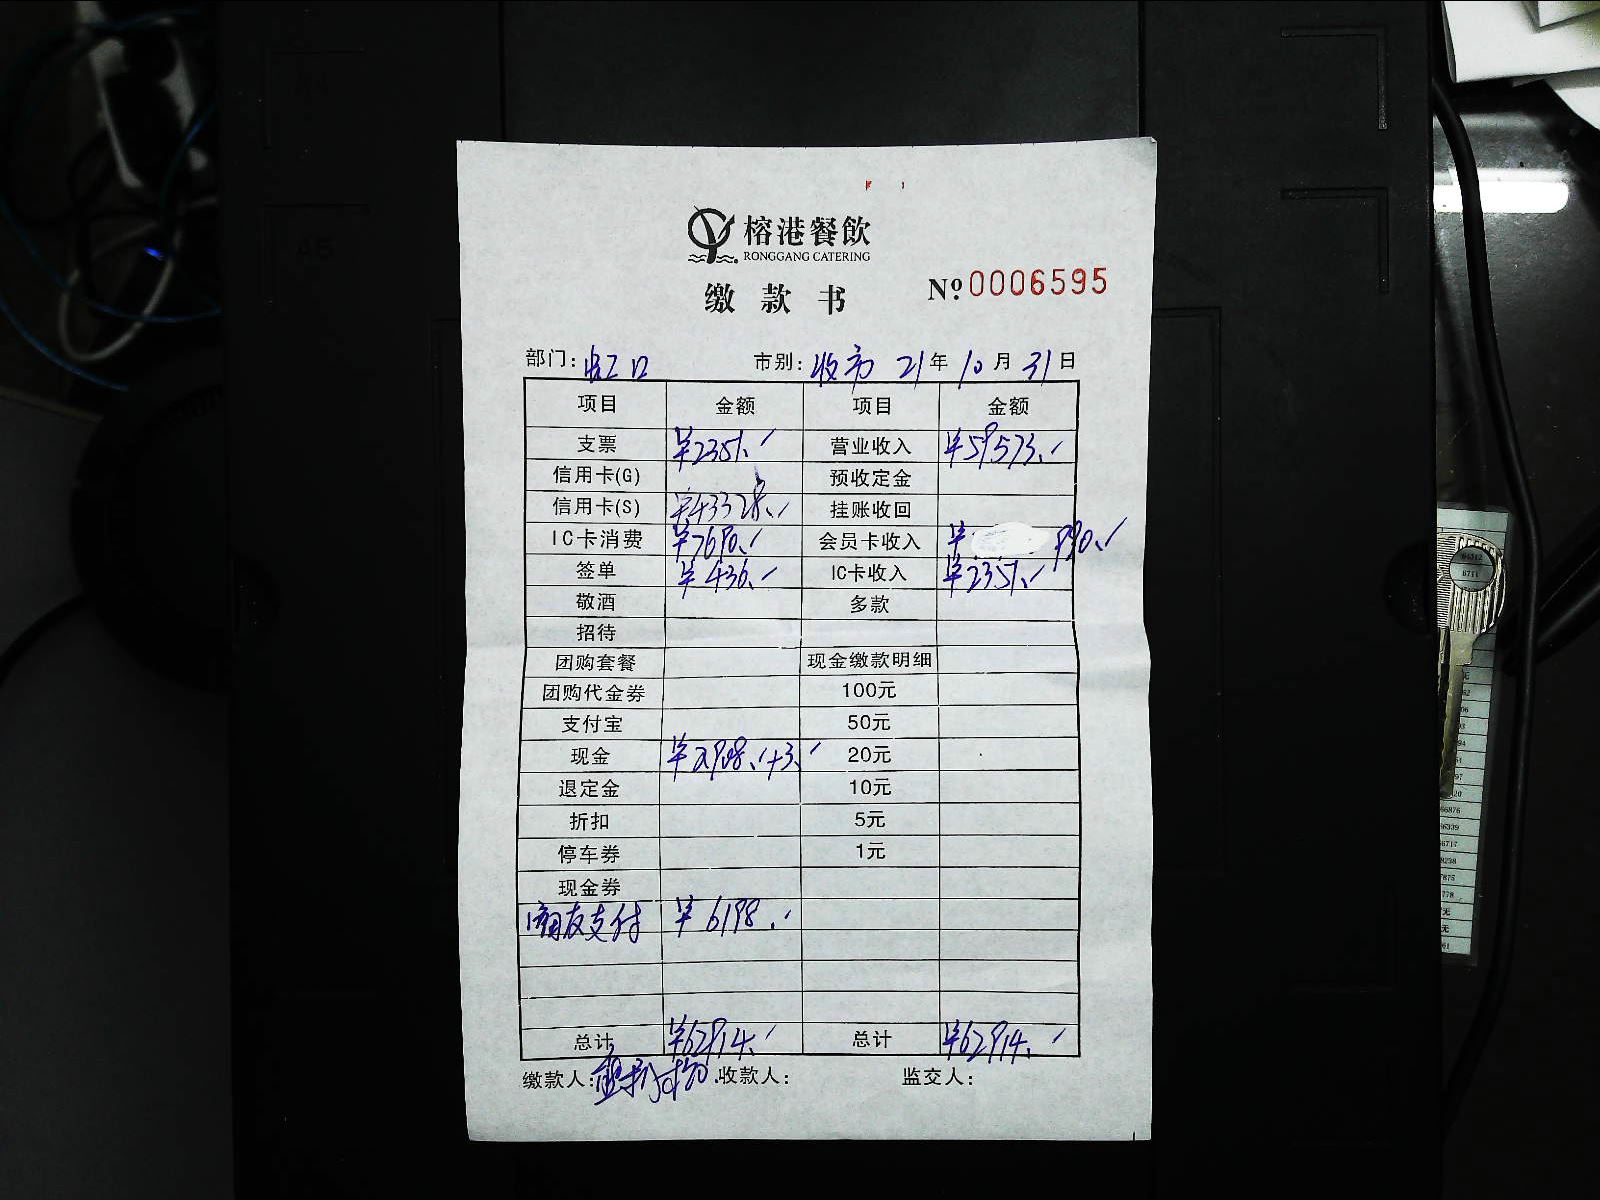 榕港餐飲
RONGGANG CATERING
缴款书
№ 0006595
部门: 虹口 市别: 收市 21年10月31日
项目 金额 项目 金额
支票 ¥2351.- 营业收入 ¥59573.-
信用卡(G) 预收定金
信用卡(S) ¥43328.- 挂账收回
IC卡消费 ¥7690.- 会员卡收入 ¥ 990.-
签单 ¥436.- IC卡收入 ¥2351.-
敬酒 多款
招待
团购套餐 现金缴款明细
团购代金券 100元
支付宝 50元
现金 ¥2908.-+3.- 20元
退定金 10元
折扣 5元
停车券 1元
现金券
支付 ¥6198.-
总计 ¥62914.- 总计 ¥62914.-
缴款人: 收款人: 监交人: